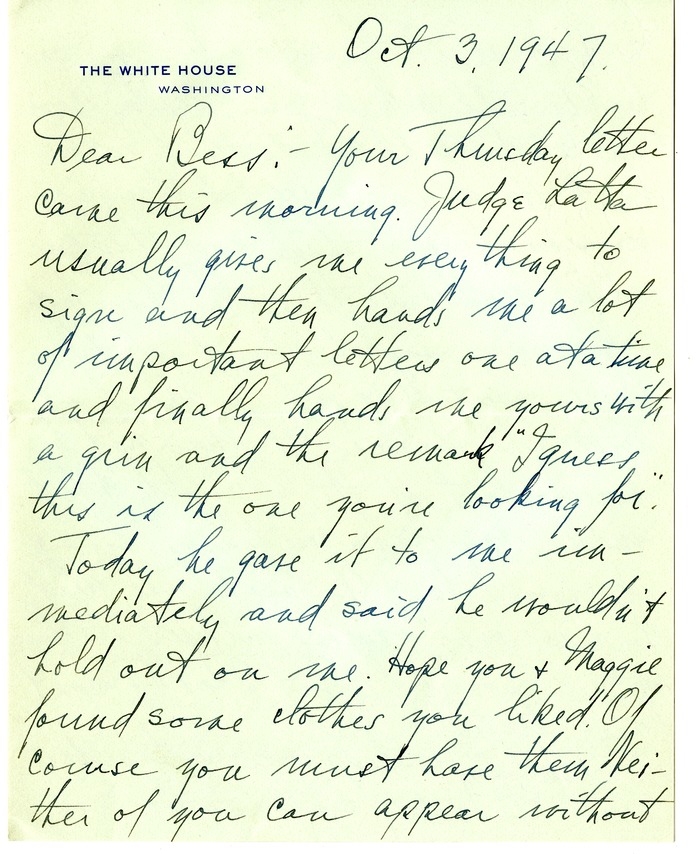 Oct. 3, 1947.
THE WHITE HOUSE
WASHINGTON
Dear Bess:- Your Thursday letter
came this morning. Judge Latta
usually gives me everything to
sign and then hands me a lot
of important letters one at a time
and finally hands me yours with
a grin and the remark "I guess
this is the one you're looking for".
Today he gave it to me im-
mediately and said he wouldn't
hold out on me. Hope you & Maggie
found some clothes you liked. Of
course you must have them Nei-
ther of you can appear without